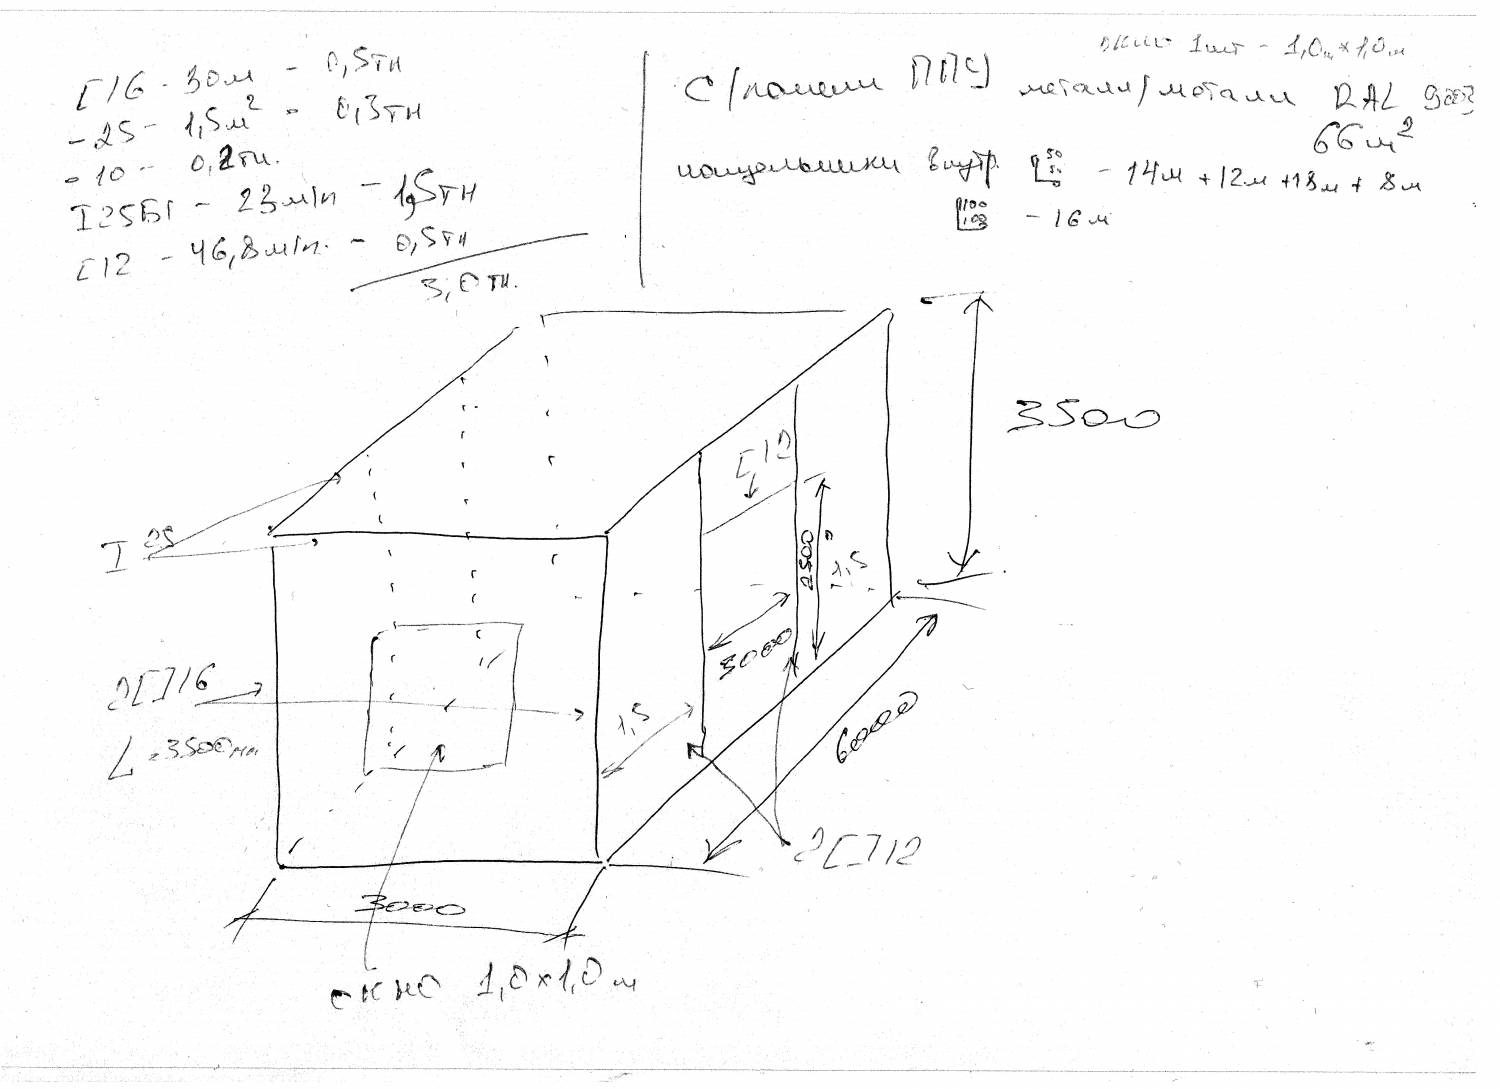 [16 - 30м - 0,5тн
-25 - 1,5м² - 0,3тн
-10 - 0,2тн.
I25Б1 - 23м/п - 1,5тн
[12 - 46,8м/п. - 0,5тн
3,0тн.
окно 1шт - 1,0м×1,0м
С/панели ППС металл/металл RAL 9003
66м²
нащельники внутр. 50 50 - 14м + 12м + 18м + 8м
100 100 - 16м
3500
[12
I 25
2500
1,5
3000
2[]16
L=3500мм
1,5
6000
2[]12
3000
окно 1,0×1,0м